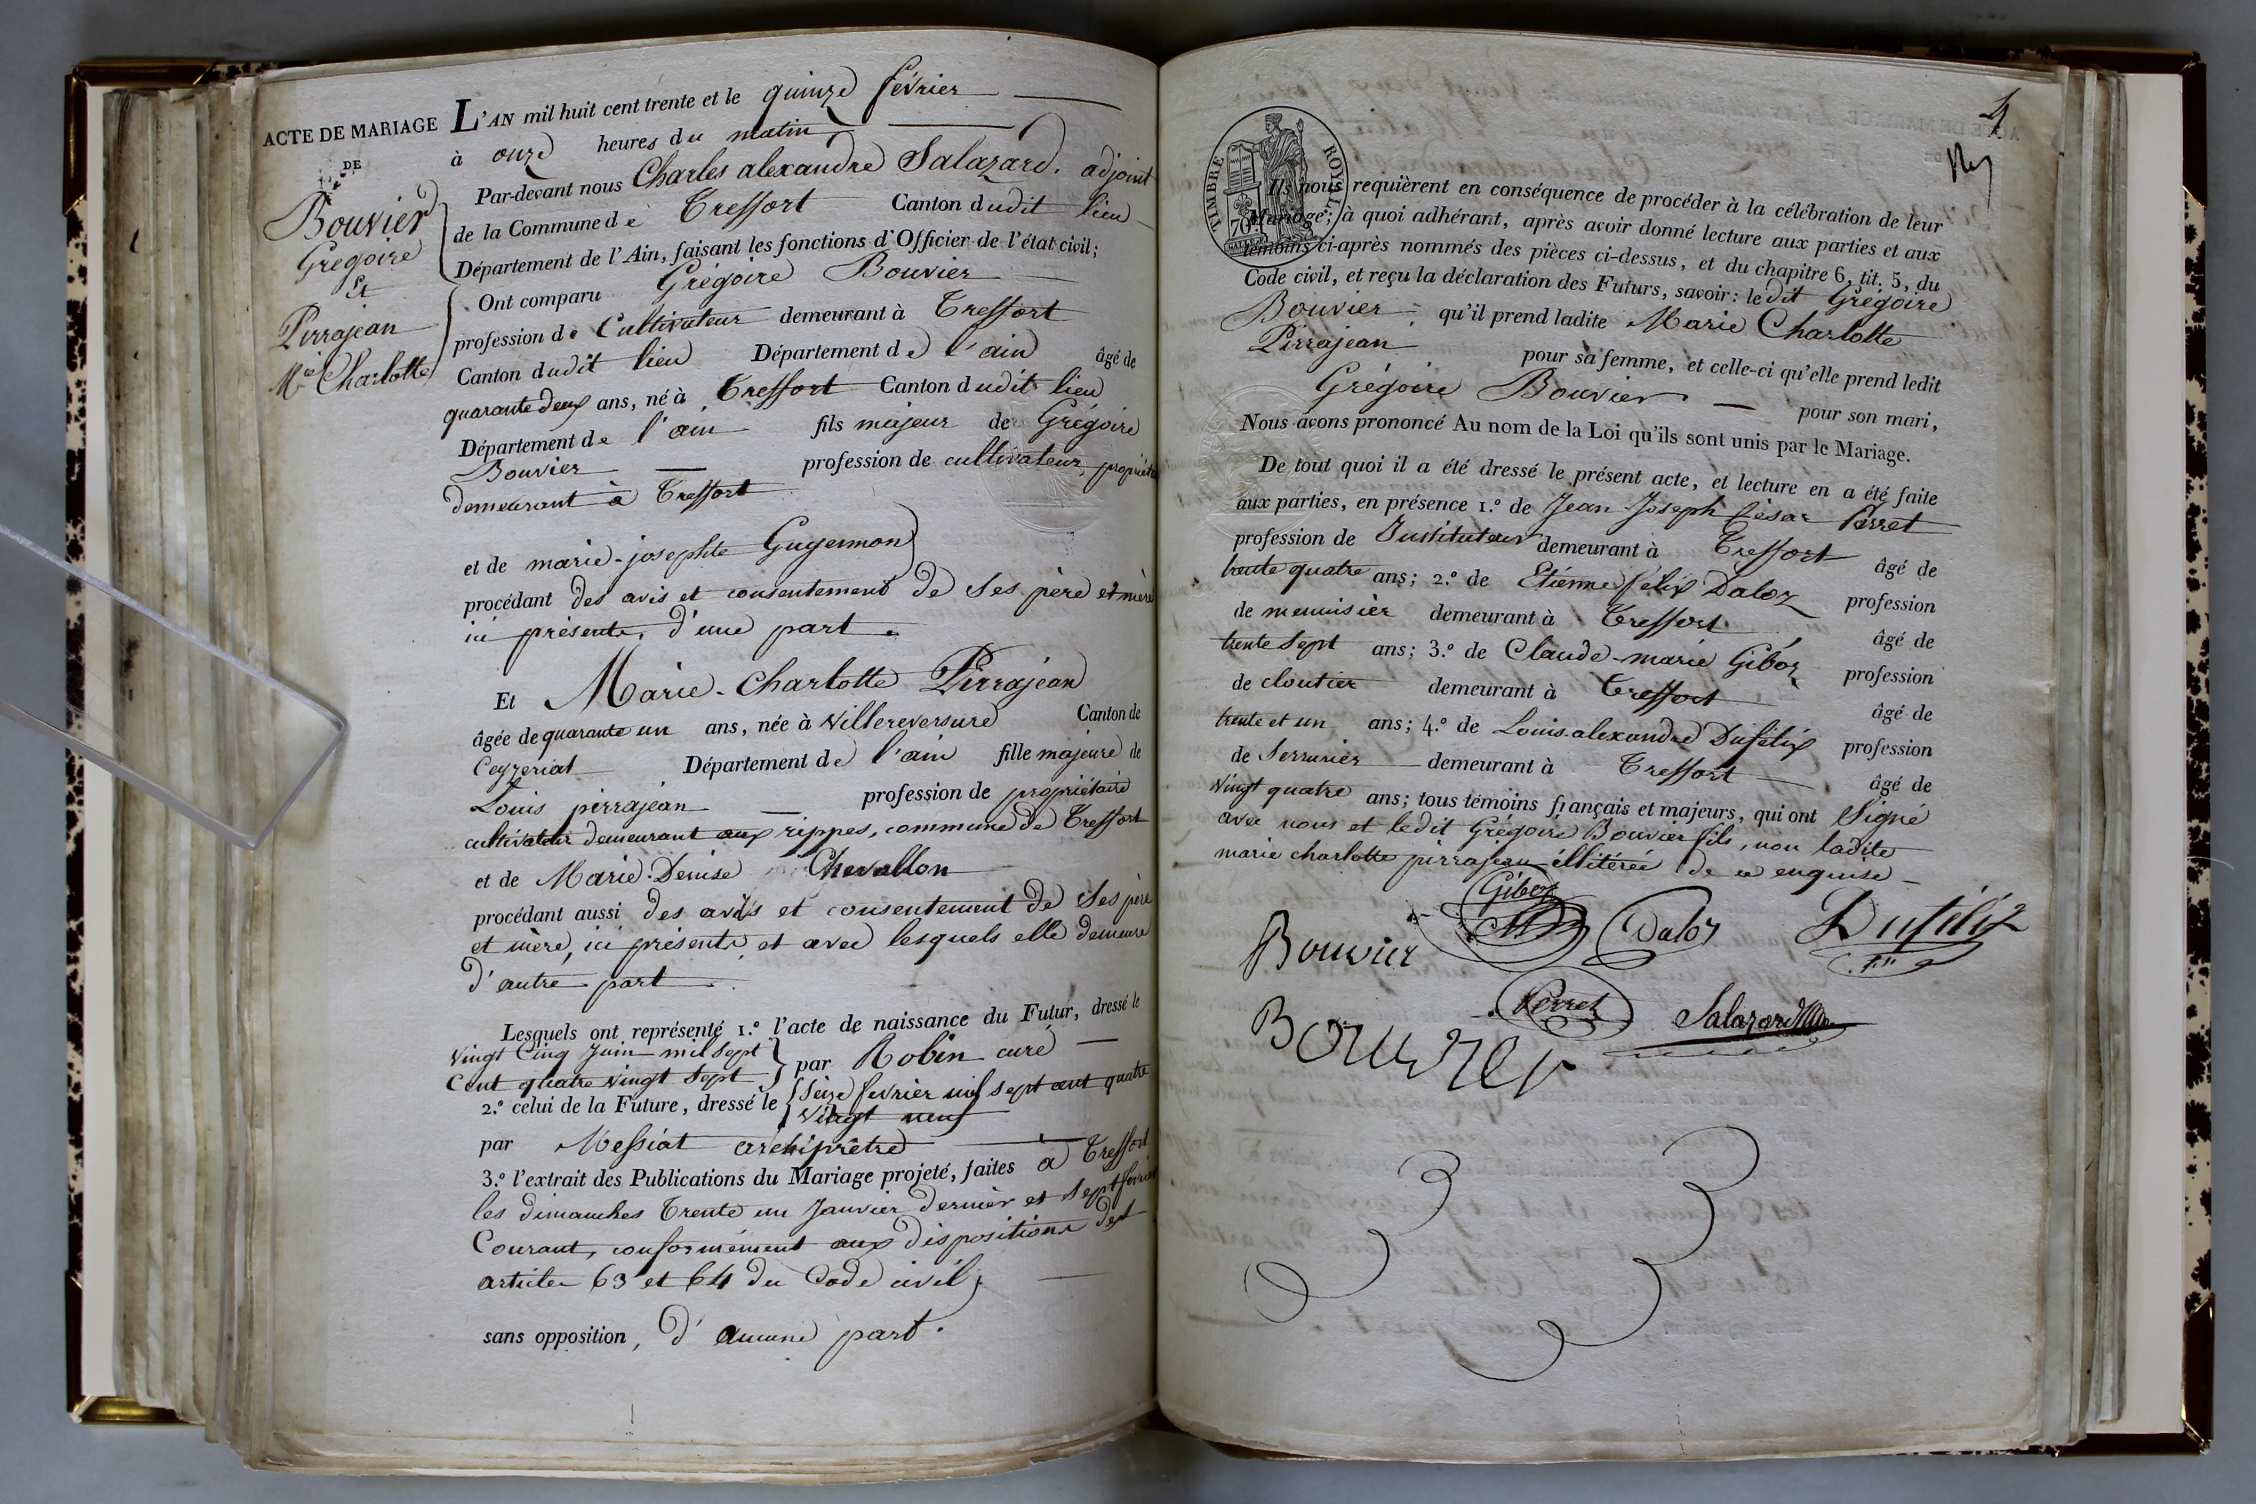 ACTE DE MARIAGE
DE
Bouvier
Grégoire
Et
Pirrajean
Mie Charlotte
L'AN mil huit cent trente et le quinze février
à onze heures du matin
Par-devant nous Charles alexandre Salazard. adjoint
de la Commune de Treffort Canton dudit lieu
Département de l'Ain, faisant les fonctions d'Officier de l'état civil;
Ont comparu Grégoire Bouvier
profession de Cultivateur demeurant à Treffort
Canton dudit lieu Département de l'ain âgé de
quarante deux ans, né à Treffort Canton dudit lieu
Département de l'ain fils majeur de Grégoire
Bouvier profession de cultivateur,
demeurant à Treffort
et de marie-josephte Guyennon
procédant des avis et consentement de Ses père et mère
ici présents, d'une part.
Et Marie-Charlotte Pirrajean
âgée de quarante un ans, née à Villereversure Canton de
Ceyzeriat Département de l'ain fille majeure de
Louis pirrajean profession de propriétaire
cultivateur demeurant aux rippes, commune de Treffort
et de Marie-Denise Chevallon
procédant aussi des avis et consentement de Ses père
et mère, ici présents, et avec lesquels elle demeure
d'autre part
Lesquels ont représenté 1.º l'acte de naissance du Futur, dressé le
Vingt Cinq Juin mil Sept
Cent quatre vingt Sept par Robin curé
2.º celui de la Future, dressé le Seize fevrier mil sept cent quatre
Vingt neuf
par Messiat archiprêtre
3.º l'extrait des Publications du Mariage projeté, faites à Treffort
les dimanches Trente un Janvier dernier et Sept fevrier
Courant, conformément aux dispositions des
articles 63 et 64 du Code civil,
sans opposition, d'aucune part.
4
TIMBRE ROYAL
70
Ils nous requièrent en conséquence de procéder à la célébration de leur
Mariage; à quoi adhérant, après avoir donné lecture aux parties et aux
témoins ci-après nommés des pièces ci-dessus, et du chapitre 6, tit. 5, du
Code civil, et reçu la déclaration des Futurs, savoir: ledit Grégoire
Bouvier qu'il prend ladite Marie Charlotte
Pirrajean pour sa femme, et celle-ci qu'elle prend ledit
Grégoire Bouvier pour son mari,
Nous avons prononcé Au nom de la Loi qu'ils sont unis par le Mariage.
De tout quoi il a été dressé le présent acte, et lecture en a été faite
aux parties, en présence 1.º de Jean Joseph César Perret
profession de Instituteur demeurant à Treffort âgé de
trente quatre ans; 2.º de Etienne félix Daloz profession
de menuisier demeurant à Treffort âgé de
trente Sept ans; 3.º de Claude-marie Giboz profession
de cloutier demeurant à Treffort âgé de
trente et un ans; 4.º de Louis-alexandre Dufélix profession
de Serrurier demeurant à Treffort âgé de
Vingt quatre ans; tous témoins français et majeurs, qui ont Signé
avec nous et ledit Grégoire Bouvier fils, non ladite
marie charlotte pirrajean illitérée de ce enquise
Giboz
Bouvier Daloz Dufélix
Perret Salazard
Bouvier